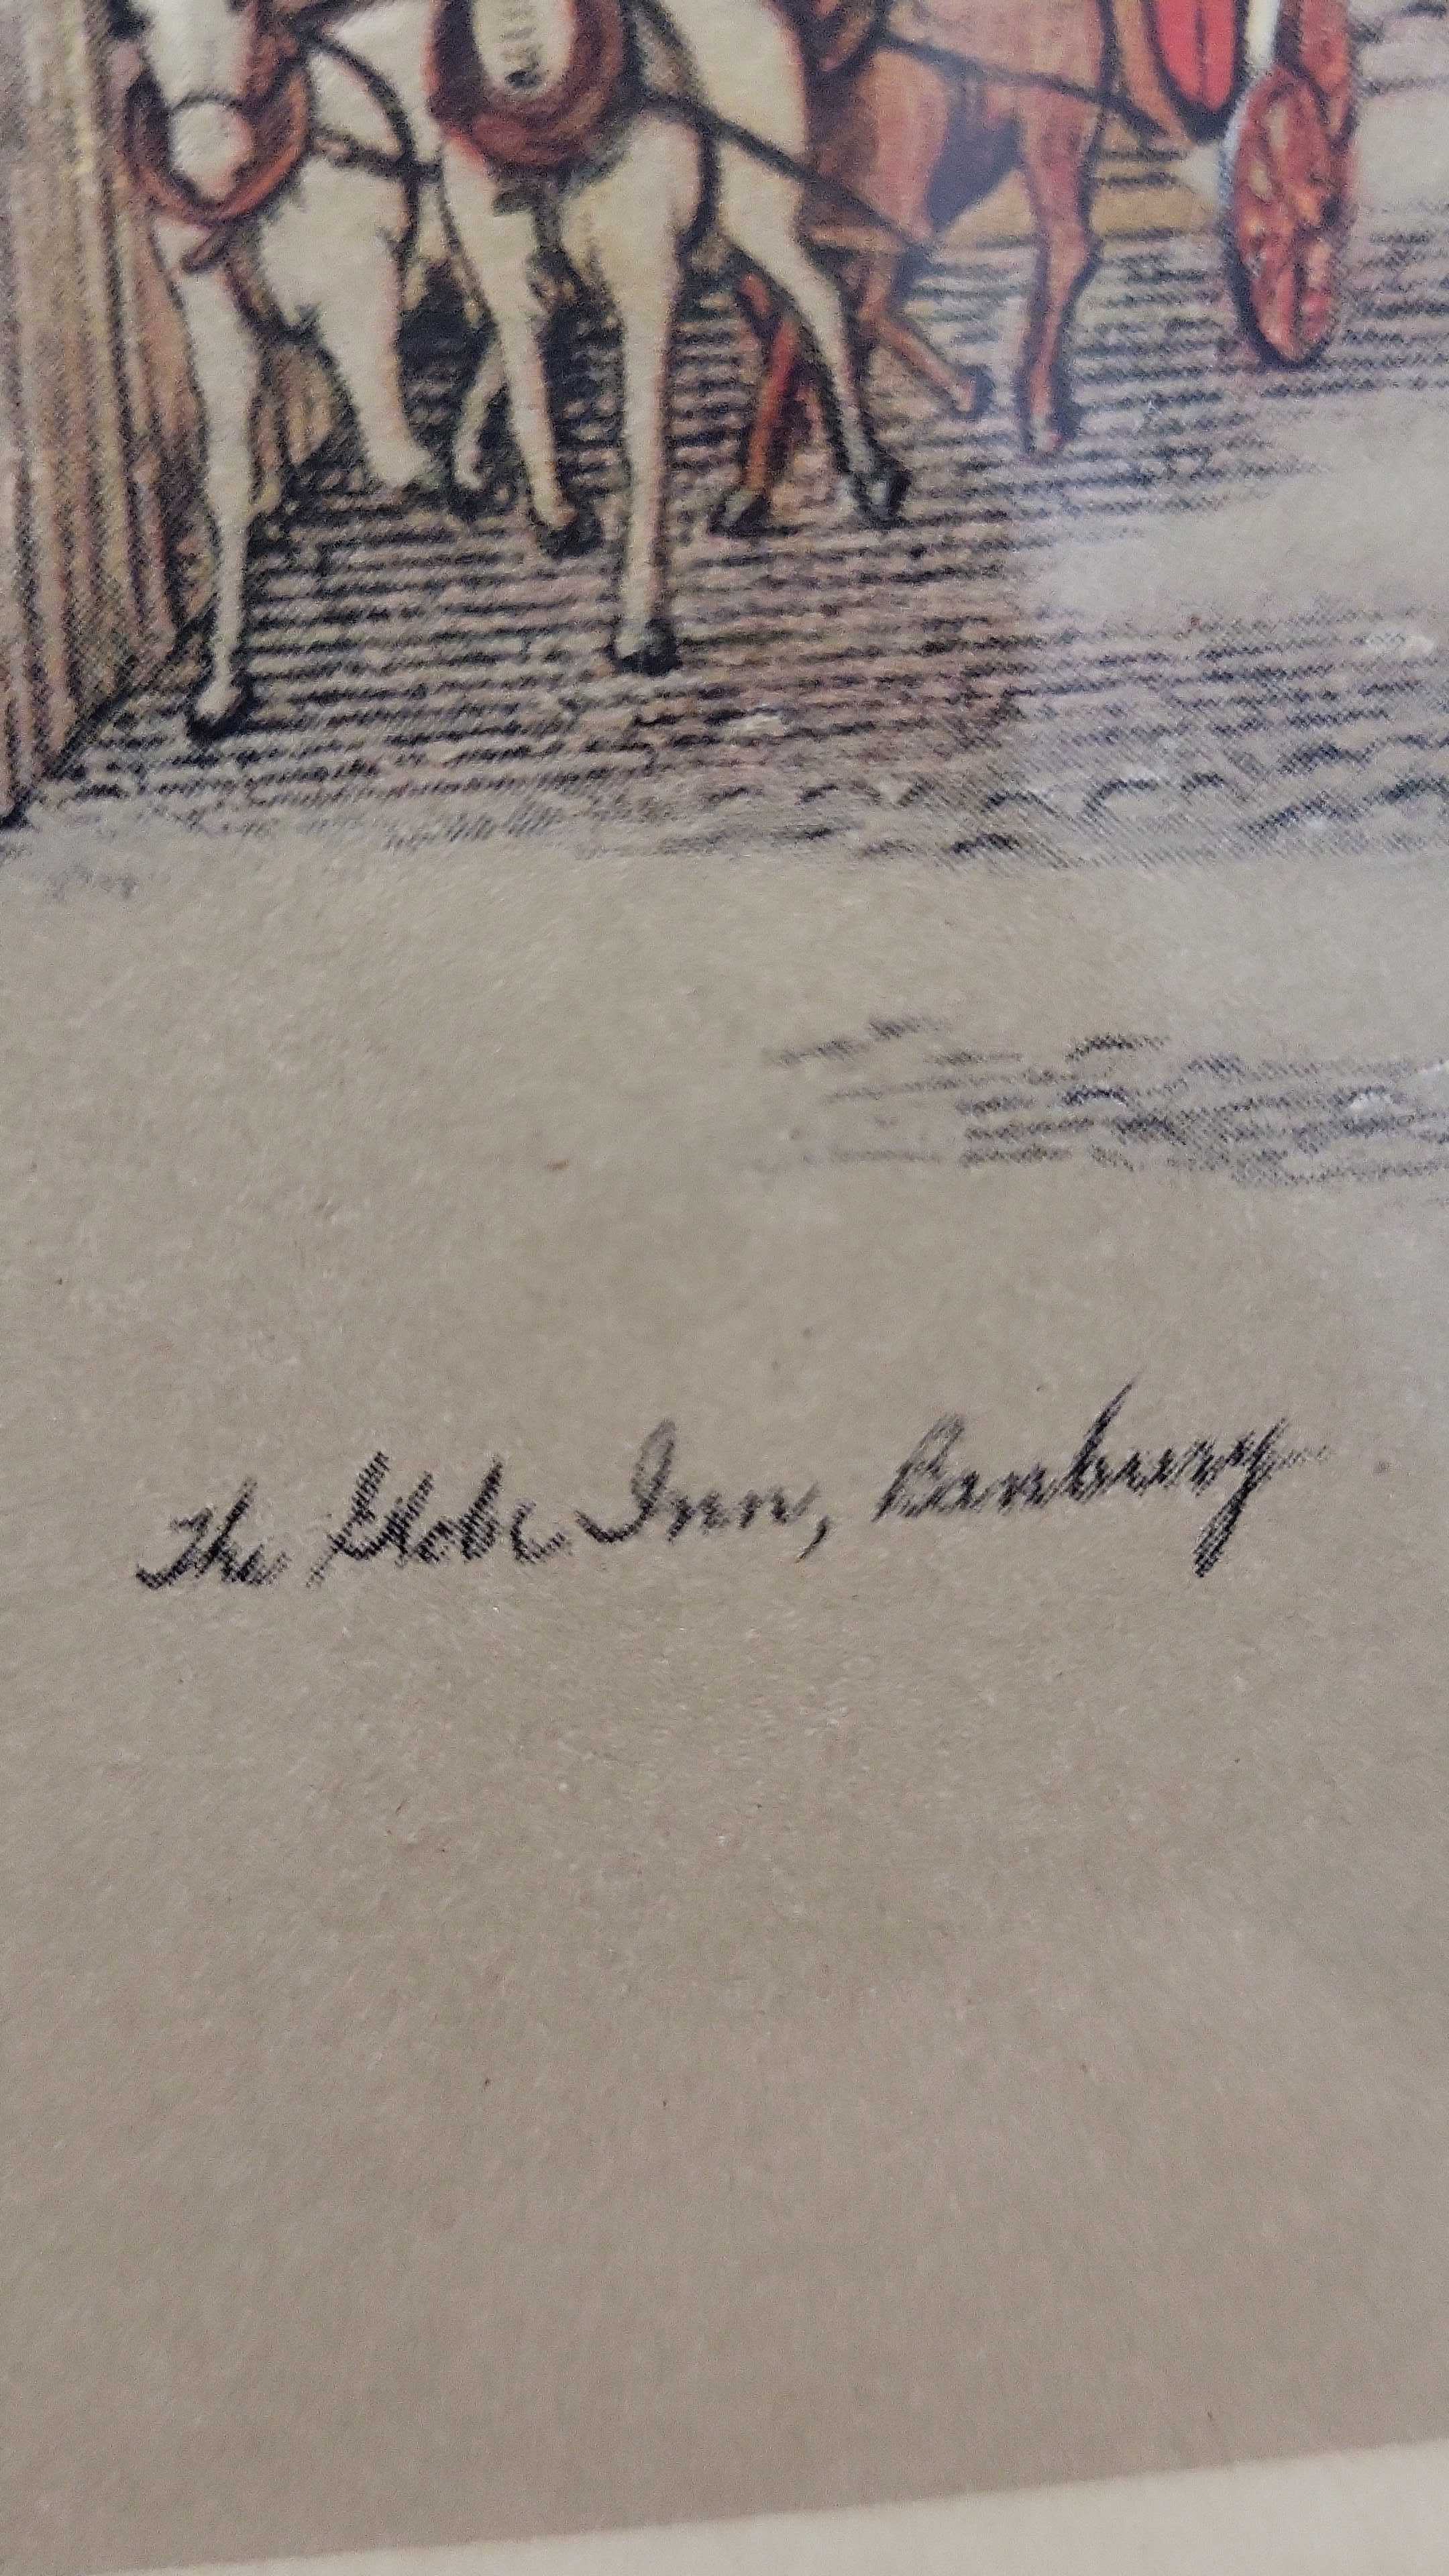 The Globe Inn, Banbury